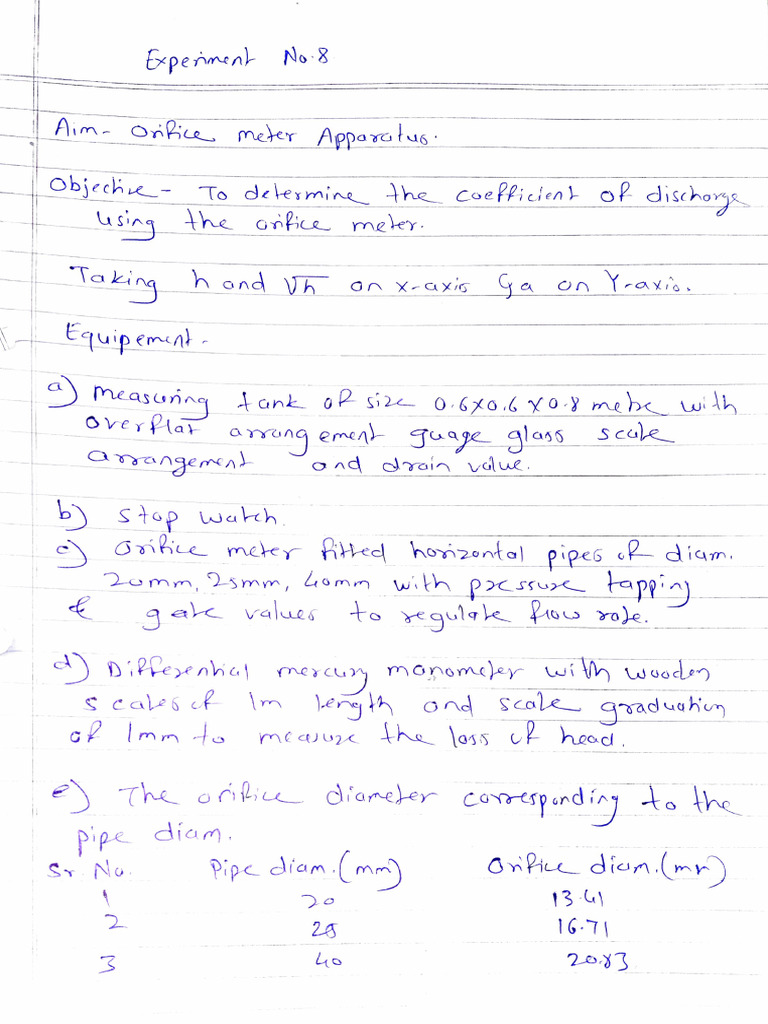 Experiment No.8
Aim- Orifice meter Apparatus.
Objective - To determine the coefficient of discharge
using the orifice meter.
Taking h and √h on x-axis Ga on Y-axis.
Equipement -
a) measuring tank of size 0.6x0.6x0.8 metre with
overflat arrangement guage glass scale
arrangement and drain value.
b) Stop watch.
c) Orifice meter fitted horizontal pipes of diam.
20mm, 25mm, 40mm with pressure tapping
& gate values to regulate flow rate.
d) Differential mercury manometer with wooden
scales of 1m length and scale graduation
of 1mm to measure the loss of head.
e) The orifice diameter corresponding to the
pipe diam.
Sr. No. Pipe diam.(mm) Orifice diam.(mm)
1 20 13.41
2 25 16.71
3 40 20.83